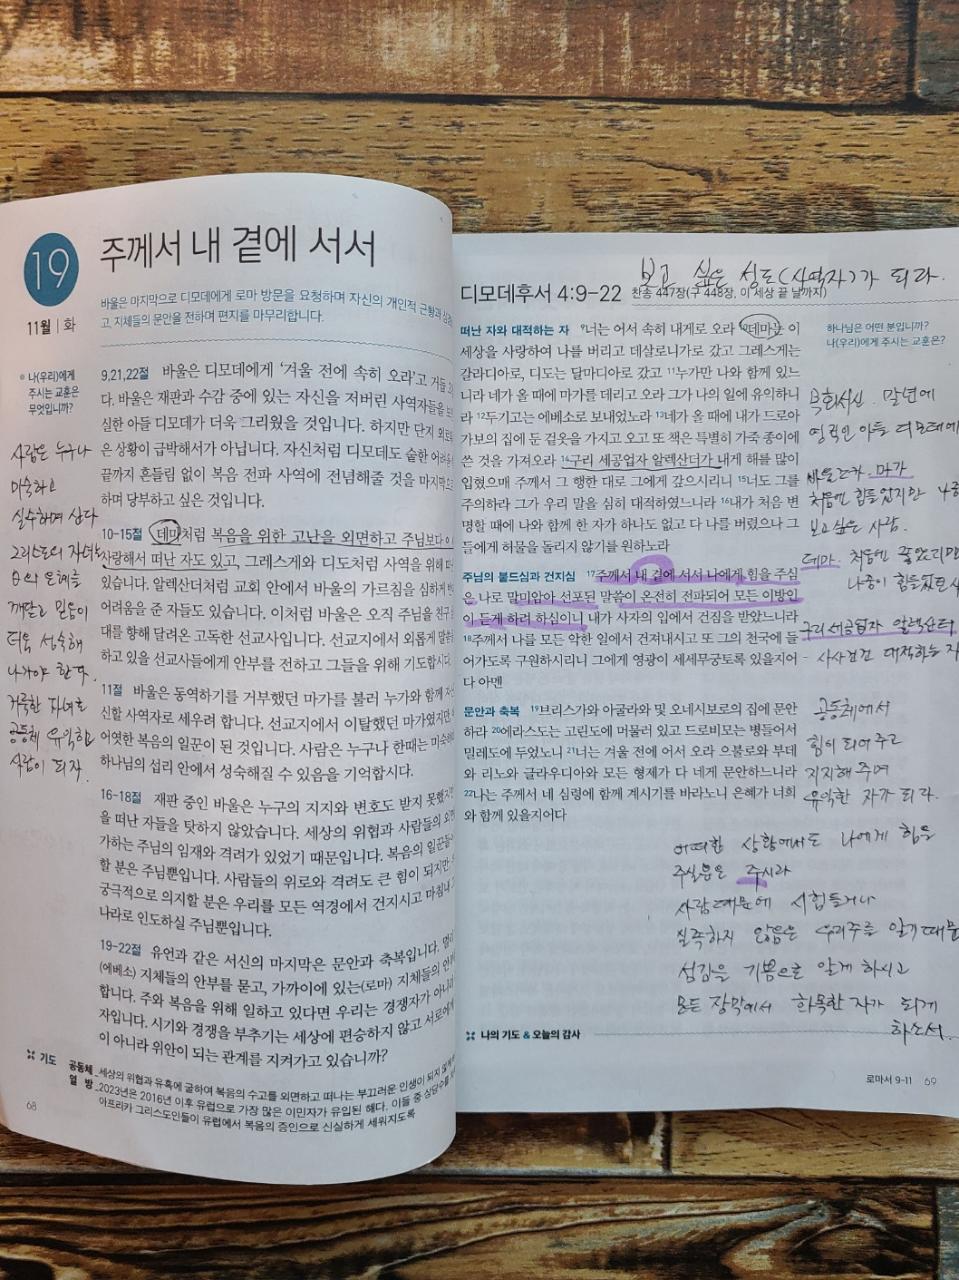 19
11월 | 화
주께서 내 곁에 서서
바울은 마지막으로 디모데에게 로마 방문을 요청하며 자신의 개인적 근황과
고, 지체들의 문안을 전하며 편지를 마무리합니다.
나(우리)에게
주시는 교훈은
무엇입니까?
사람은 누구나
미숙하고
실수하며 산다
그리스도의 자녀는
은혜를
깨닫고 믿음이
더욱 성숙해
나가야 한다.
거룩한 자녀로
공동체 유익한
사람이 되자.
9,21,22절 바울은 디모데에게 ‘겨울 전에 속히 오라’고 거듭
다. 바울은 재판과 수감 중에 있는 자신을 저버린 사역자들을
실한 아들 디모데가 더욱 그리웠을 것입니다. 하지만 단지
은 상황이 급박해서가 아닙니다. 자신처럼 디모데도 숱한
끝까지 흔들림 없이 복음 전파 사역에 전념해줄 것을
하며 당부하고 싶은 것입니다.
10-15절 데마처럼 복음을 위한 고난을 외면하고 주님보다 이
사랑해서 떠난 자도 있고, 그레스게와 디도처럼 사역을 위해
있습니다. 알렉산더처럼 교회 안에서 바울의 가르침을 심하게
어려움을 준 자들도 있습니다. 이처럼 바울은 오직 주님을
대를 향해 달려온 고독한 선교사입니다. 선교지에서 외롭게
하고 있을 선교사들에게 안부를 전하고 그들을 위해 기도합시다.
11절 바울은 동역하기를 거부했던 마가를 불러 누가와 함께
신할 사역자로 세우려 합니다. 선교지에서 이탈했던 마가였지만
어엿한 복음의 일꾼이 된 것입니다. 사람은 누구나 한때는
하나님의 섭리 안에서 성숙해질 수 있음을 기억합시다.
16-18절 재판 중인 바울은 누구의 지지와 변호도 받지 못했지만
을 떠난 자들을 탓하지 않았습니다. 세상의 위협과 사람들의
가하는 주님의 임재와 격려가 있었기 때문입니다. 복음의
할 분은 주님뿐입니다. 사람들의 위로와 격려도 큰 힘이 되지만
궁극적으로 의지할 분은 우리를 모든 역경에서 건지시고 마침내
나라로 인도하실 주님뿐입니다.
19-22절 유언과 같은 서신의 마지막은 문안과 축복입니다.
(에베소) 지체들의 안부를 묻고, 가까이에 있는(로마) 지체들의
합니다. 주와 복음을 위해 일하고 있다면 우리는 경쟁자가
자입니다. 시기와 경쟁을 부추기는 세상에 편승하지 않고 서로에게
이 아니라 위안이 되는 관계를 지켜가고 있습니까?
기도 공동체_세상의 위협과 유혹에 굴하여 복음의 수고를 외면하고 떠나는 부끄러운 인생이 되지
열 방_2023년은 2016년 이후 유럽으로 가장 많은 이민자가 유입된 해다. 이들 중 상당수를
아프리카 그리스도인들이 유럽에서 복음의 증인으로 신실하게 세워지도록
68
보고 싶은 성도(사역자)가 되라.
디모데후서 4:9-22 찬송 447장(구 448장, 이 세상 끝 날까지)
떠난 자와 대적하는 자 9너는 어서 속히 내게로 오라 10데마는 이
세상을 사랑하여 나를 버리고 데살로니가로 갔고 그레스게는
갈라디아로, 디도는 달마디아로 갔고 11누가만 나와 함께 있느
니라 네가 올 때에 마가를 데리고 오라 그가 나의 일에 유익하니
라 12두기고는 에베소로 보내었노라 13네가 올 때에 내가 드로아
가보의 집에 둔 겉옷을 가지고 오고 또 책은 특별히 가죽 종이에
쓴 것을 가져오라 14구리 세공업자 알렉산더가 내게 해를 많이
입혔으매 주께서 그 행한 대로 그에게 갚으시리니 15너도 그를
주의하라 그가 우리 말을 심히 대적하였느니라 16내가 처음 변
명할 때에 나와 함께 한 자가 하나도 없고 다 나를 버렸으나 그
들에게 허물을 돌리지 않기를 원하노라
주님의 붙드심과 건지심 17주께서 내 곁에 서서 나에게 힘을 주심
은 나로 말미암아 선포된 말씀이 온전히 전파되어 모든 이방인
이 듣게 하려 하심이니 내가 사자의 입에서 건짐을 받았느니라
18주께서 나를 모든 악한 일에서 건져내시고 또 그의 천국에 들
어가도록 구원하시리니 그에게 영광이 세세무궁토록 있을지어
다 아멘
문안과 축복 19브리스가와 아굴라와 및 오네시보로의 집에 문안
하라 20에라스도는 고린도에 머물러 있고 드로비모는 병들어서
밀레도에 두었노니 21너는 겨울 전에 어서 오라 으불로와 부데
와 리노와 글라우디아와 모든 형제가 다 네게 문안하느니라
22나는 주께서 네 심령에 함께 계시기를 바라노니 은혜가 너희
와 함께 있을지어다
하나님은 어떤 분입니까?
나(우리)에게 주시는 교훈은?
목회서신. 말년에
영적인 아들 디모데에
마가
처음엔 힘들었지만
보고싶은 사람.
데마. 처음엔 좋았지만
나중이 힘들었던
구리세공업자 알렉산더
- 사사건건 대적하는 자
공동체에서
힘이 되어주고
지지해 주며
유익한 자가 되라.
어떠한 상황에서도 나에게 힘을
주실분은 주시라
사람때문에 시험들거나
실족하지 않음은 우리주를 알기때문
섬김을 기쁨으로 알게 하시고
모든 장막에서 화목한 자가 되게
하소서.
나의 기도 & 오늘의 감사
로마서 9-11 69